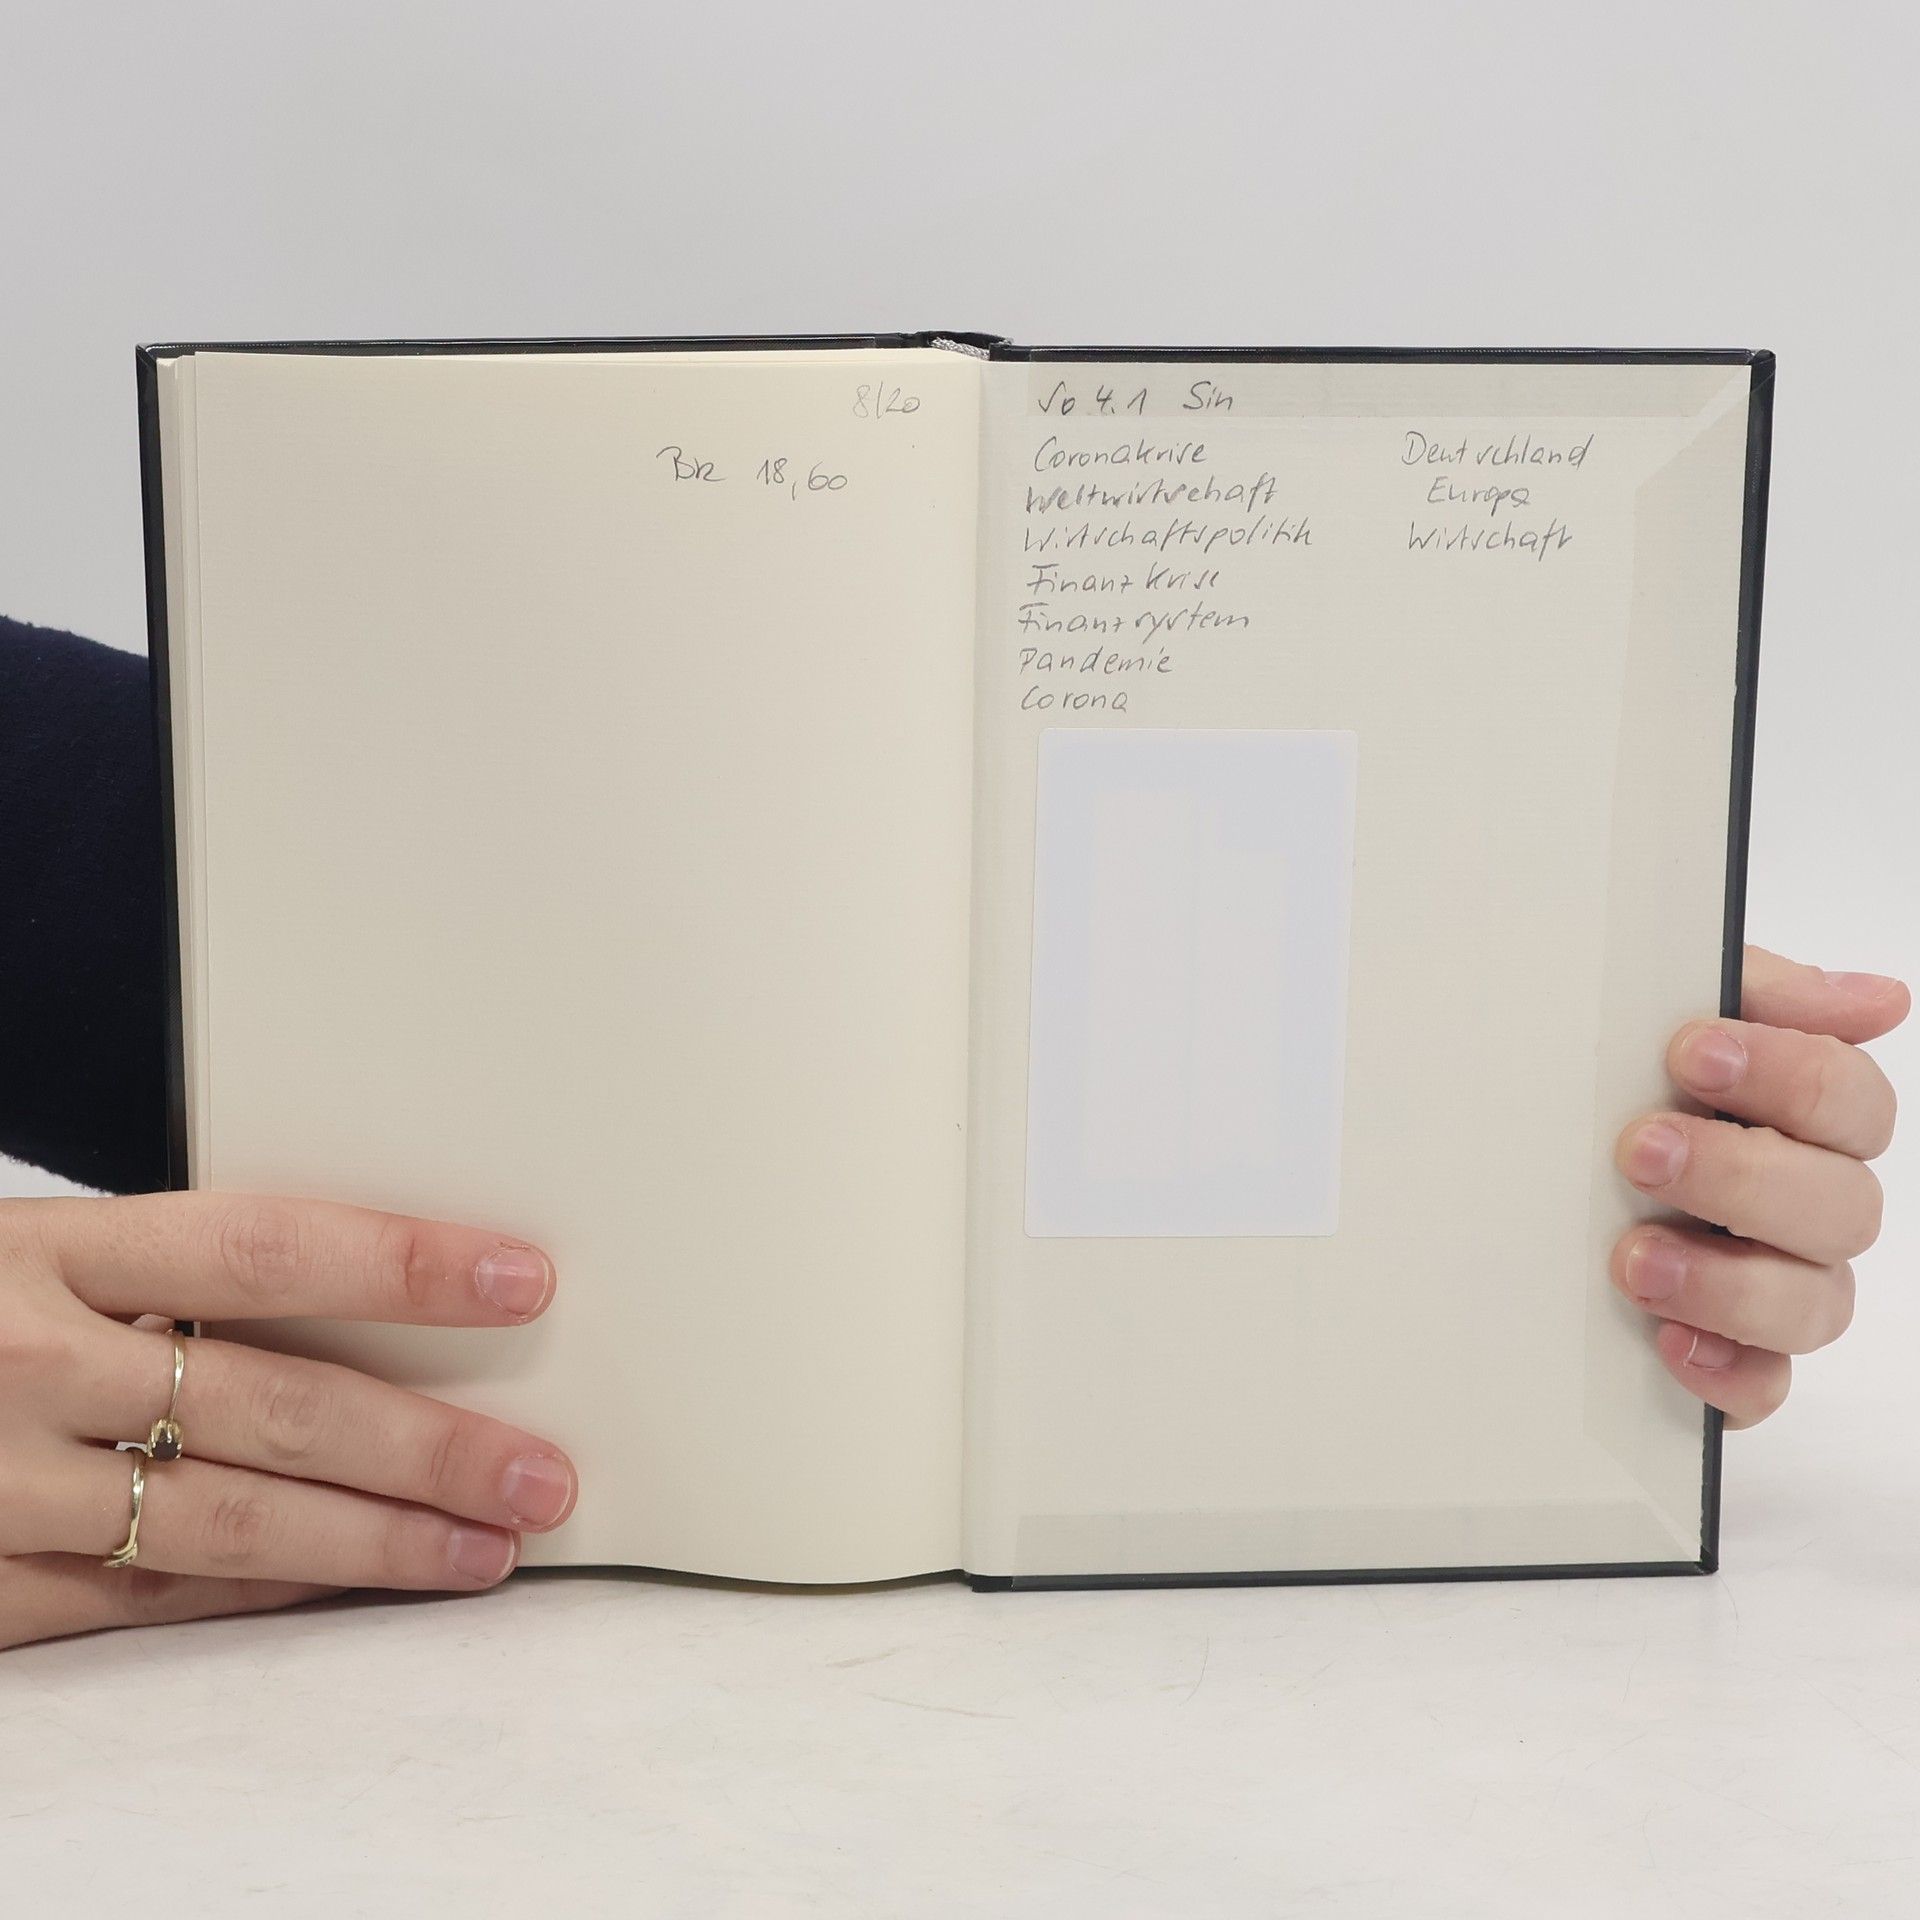 8/20
Bk 18,60
So 4.1 Sin
Coronakrise
Weltwirtschaft
Wirtschaftspolitik
Finanzkrise
Finanzsystem
Pandemie
Corona
Deutschland
Europa
Wirtschaft